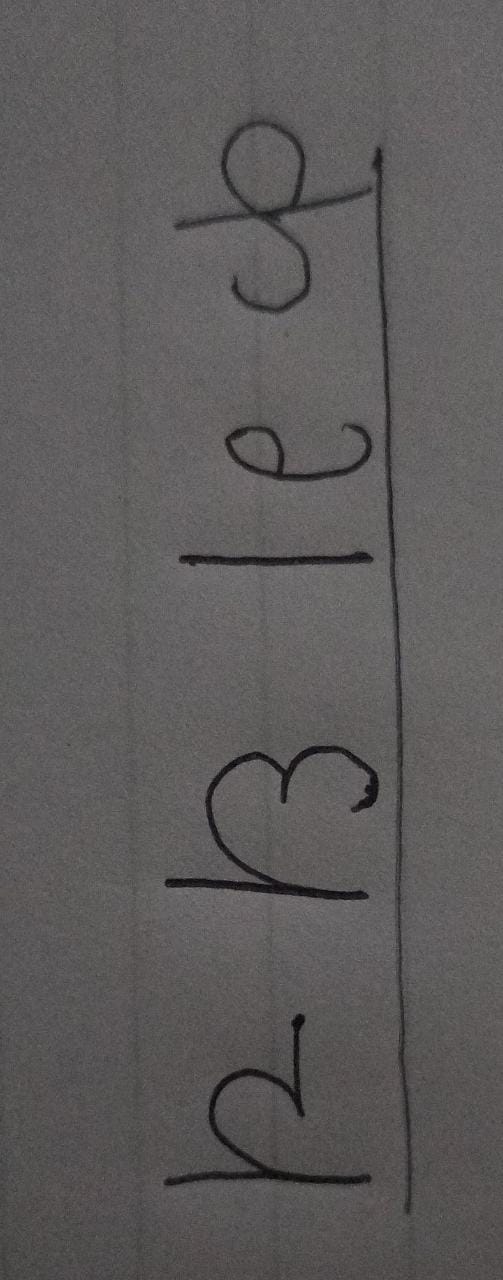 क ग घ च